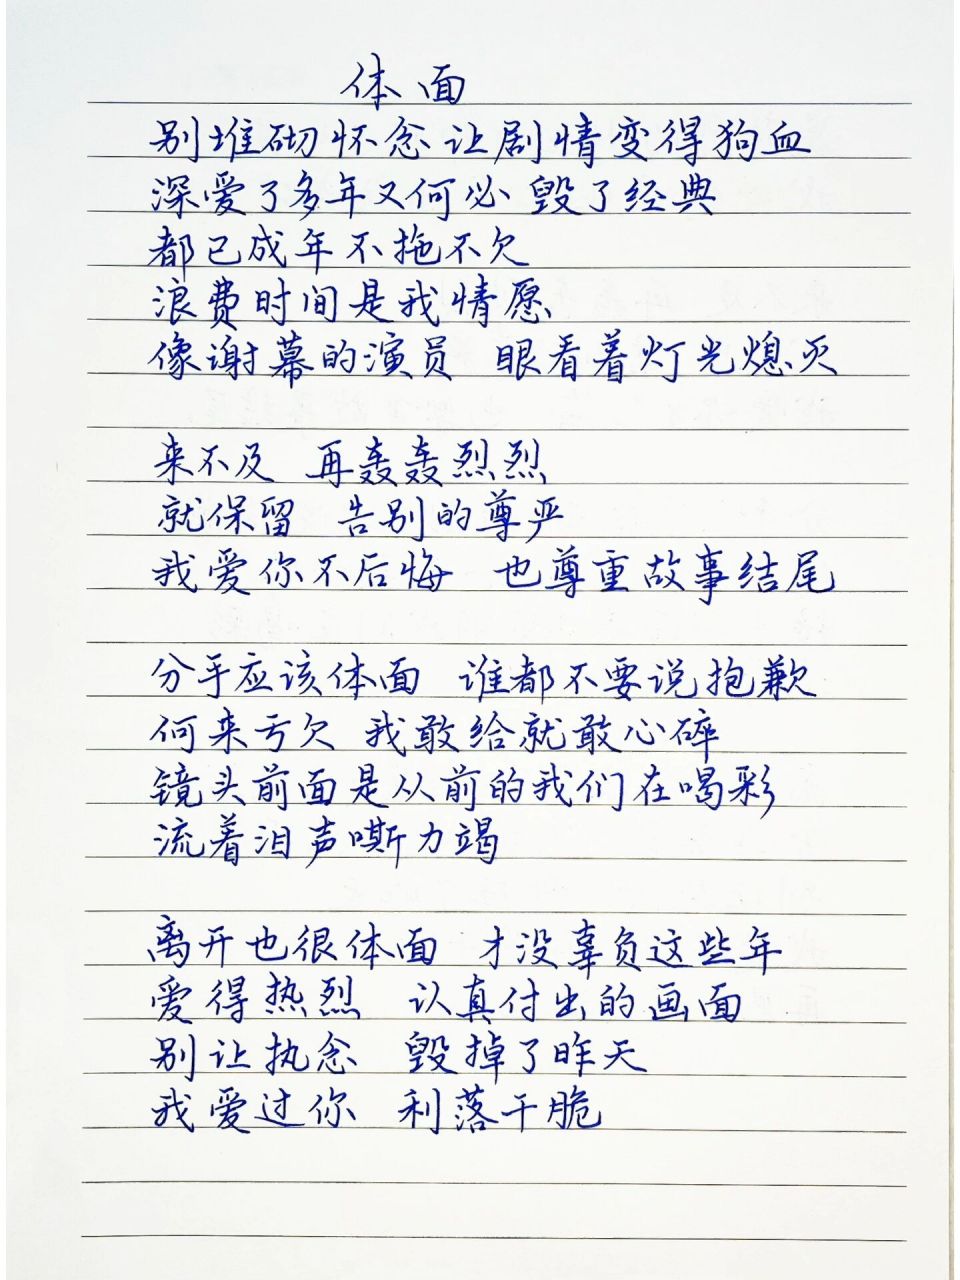 体面
别堆砌怀念让剧情变得狗血
深爱了多年又何必 毁了经典
都已成年不拖不欠
浪费时间是我情愿
像谢幕的演员 眼看着灯光熄灭
来不及 再轰轰烈烈
就保留 告别的尊严
我爱你不后悔 也尊重故事结尾
分手应该体面 谁都不要说抱歉
何来亏欠 我敢给就敢心碎
镜头前面是从前的我们在喝彩
流着泪声嘶力竭
离开也很体面 才没辜负这些年
爱得热烈 认真付出的画面
别让执念 毁掉了昨天
我爱过你 利落干脆